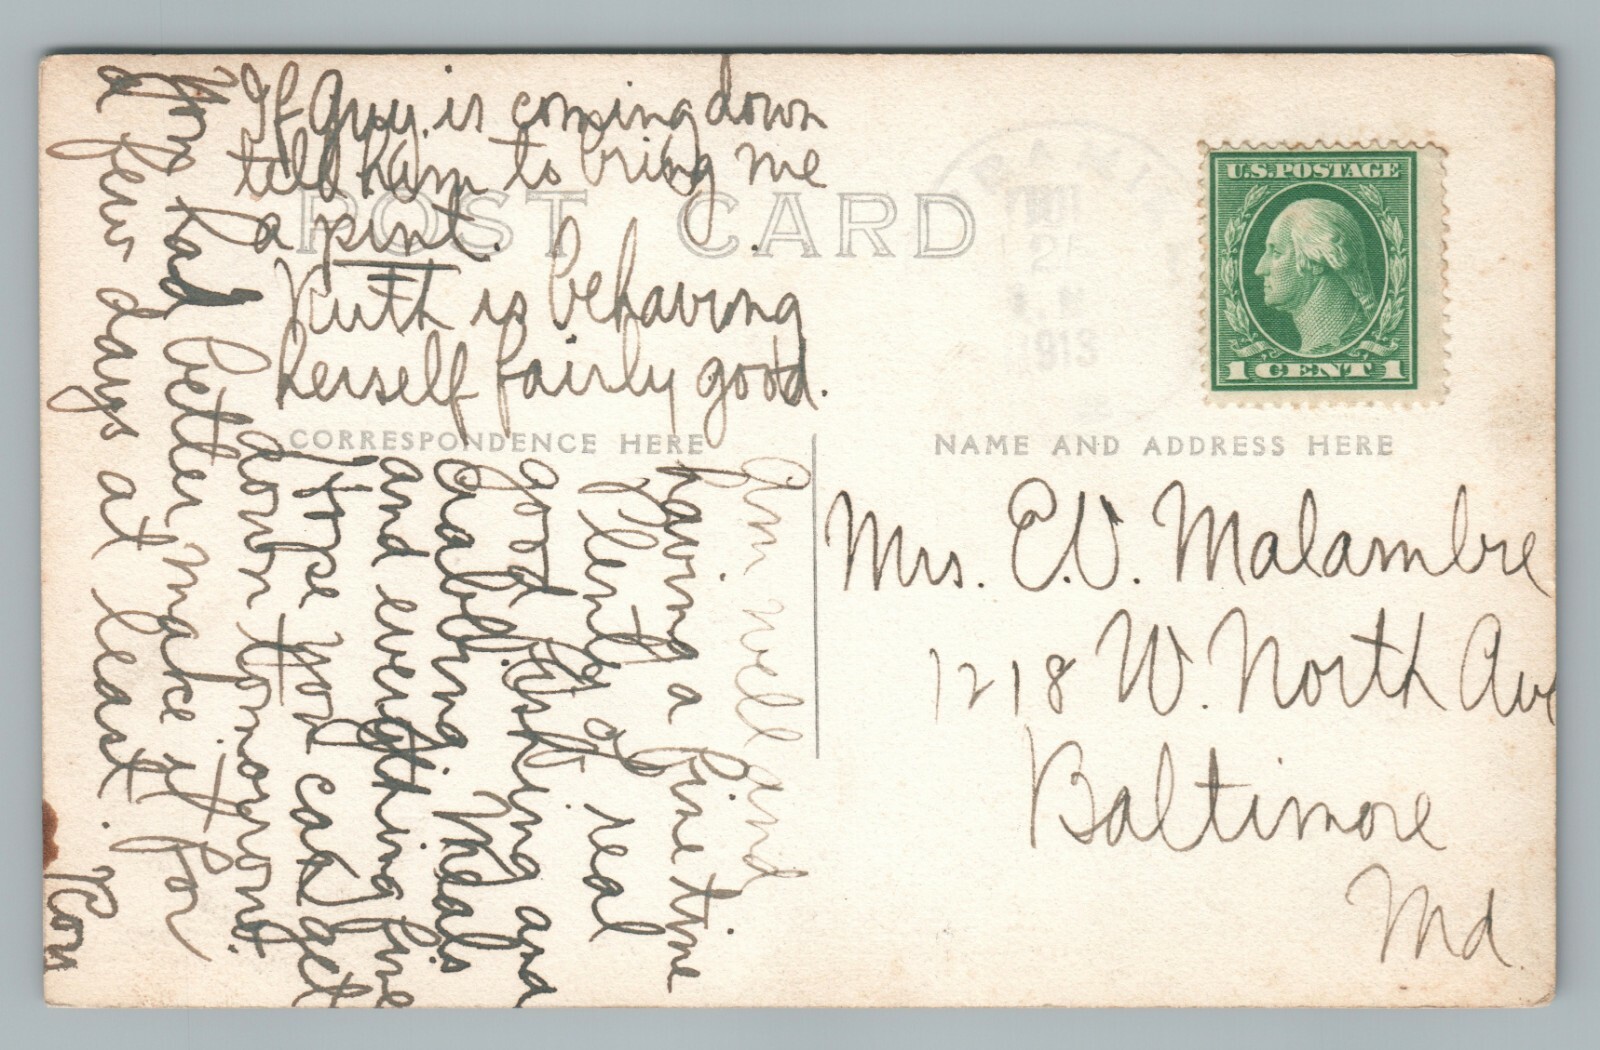 If Guy is coming down
tell him to bring me
a pint.
Ruth is behaving
herself fairly good.
POST CARD
CORRESPONDENCE HERE
NAME AND ADDRESS HERE
U.S. POSTAGE
1 CENT 1
1913
Mrs. E.V. Malambre
1218 W. North Ave
Baltimore
Md.
Am well and
having a fine time
Plenty of real
good fishing and
crabbing. Meals
and everything fine
Hope you can get
down tomorrow.
You had better make it for
a few days at least.